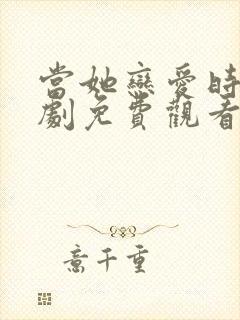 當她戀愛時
劇免費觀看
意千重